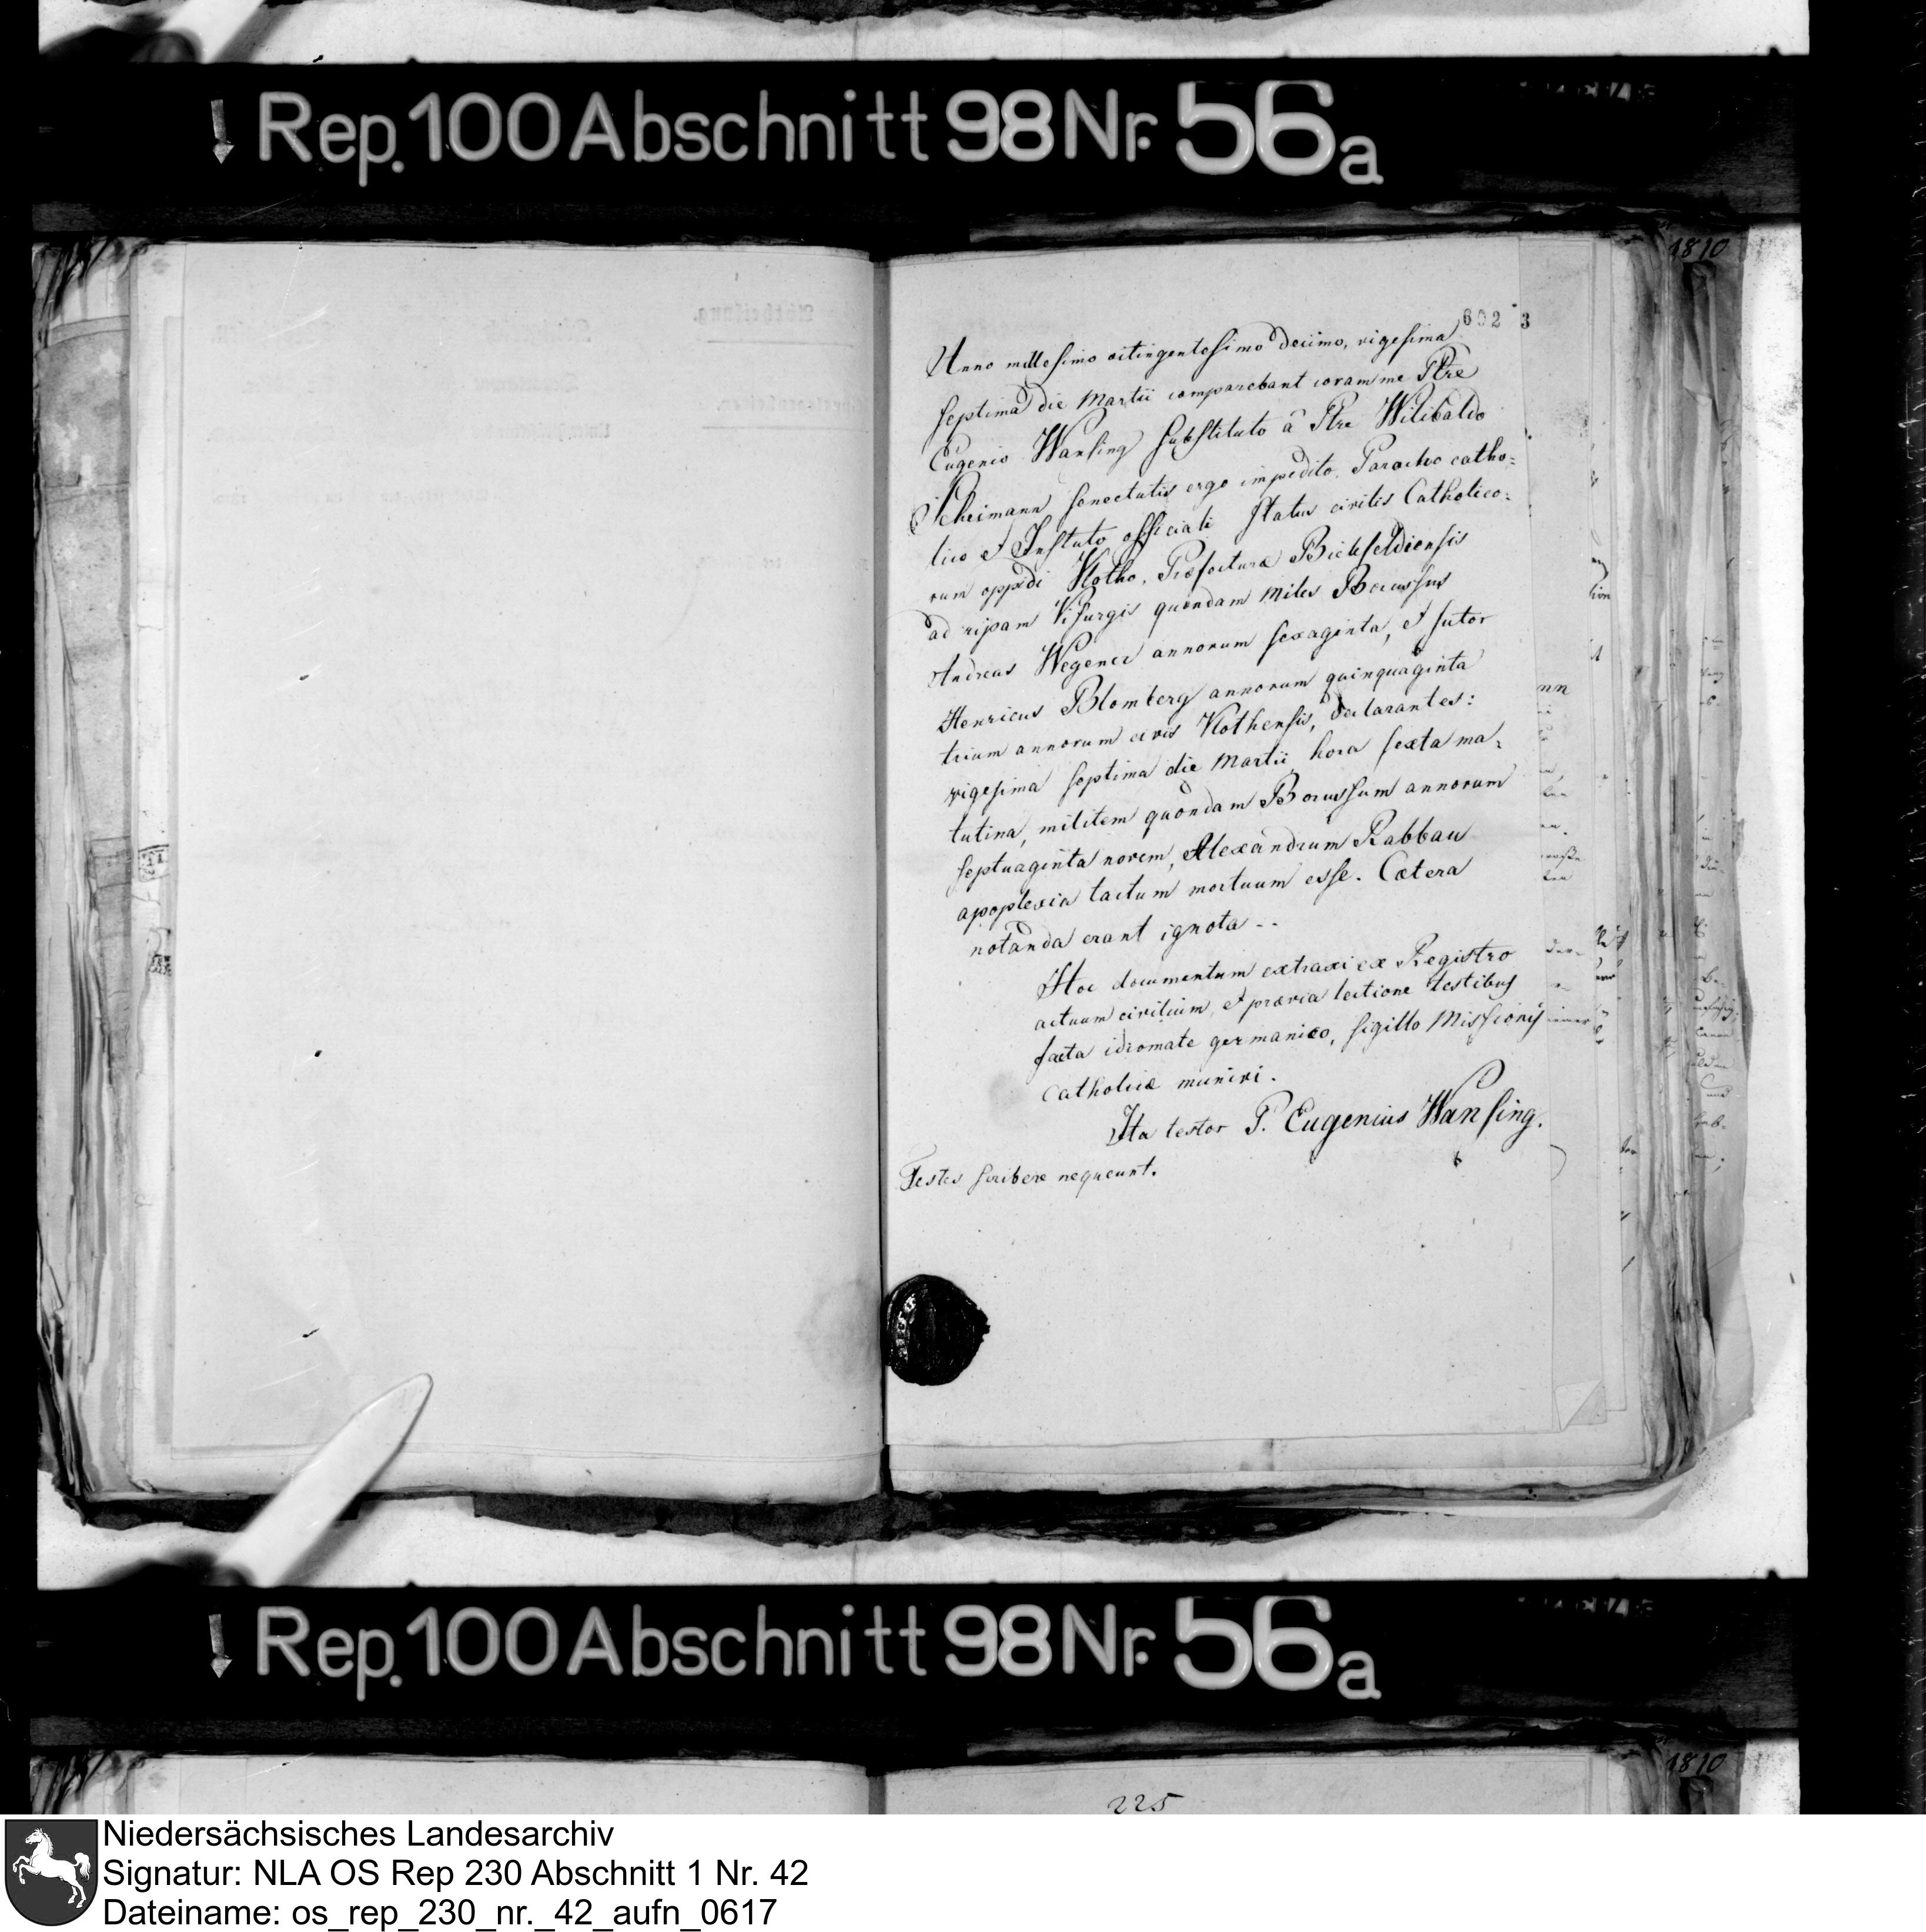 Rep. 100 Abschnitt 98 Nr. 56a
1810
602 3
Anno millesimo octingentesimo decimo, vigesima
septima die Martii comparebant coram me Ptre
Eugenio Wansing substituto â Ptre Wilibaldo
Scheimann senectutis ergo impedito. Parocho catho=
lico et Instituto officiali status civilis Catholico=
rum oppidi Vlotho, Præfecturæ Bielefeldiensis
ad ripam Visurgis quondam miles Borussus
Andreas Wegener annorum sexaginta, et sutor
Henricus Blomberg annorum quinquaginta
trium annorum civis Vlothensis, declarantes:
vigesima septima die Martii hora sexta ma=
tutina, militem quondam Borussum annorum
septuaginta novem, Alexandrum Rabbau
apoplexia tactum mortuum esse. Cætera
notanda erant ignota --
Hoc documentum extraxi ex Registro
actuum civilium, et prævia lectione testibus
facta idiomate germanico, sigillo Missionis
catholicæ munivi.
Ita testor P. Eugenius Wansing.
Testes scribere nequeunt.
Rep. 100 Abschnitt 98 Nr. 56a
1810
225
Niedersächsisches Landesarchiv
Signatur: NLA OS Rep 230 Abschnitt 1 Nr. 42
Dateiname: os_rep_230_nr._42_aufn_0617